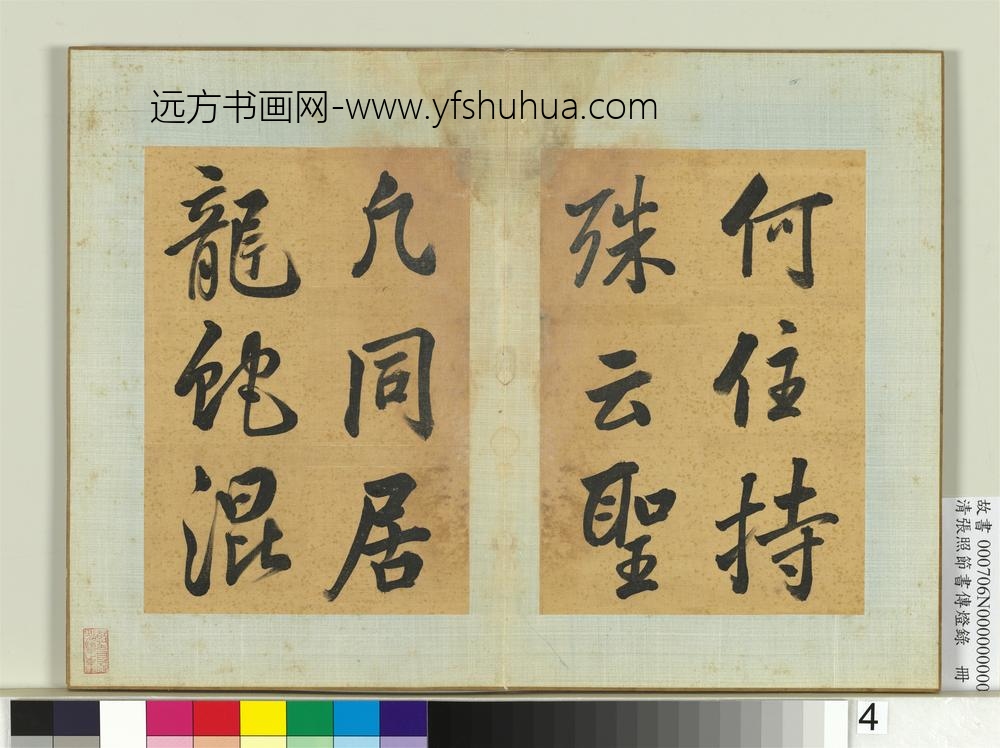 远方书画网-www.yfshuhua.com
何住持
殊云聖
凡同居
龍蛇混
故書 000706N000000000
清張照節書傳燈錄 冊
4